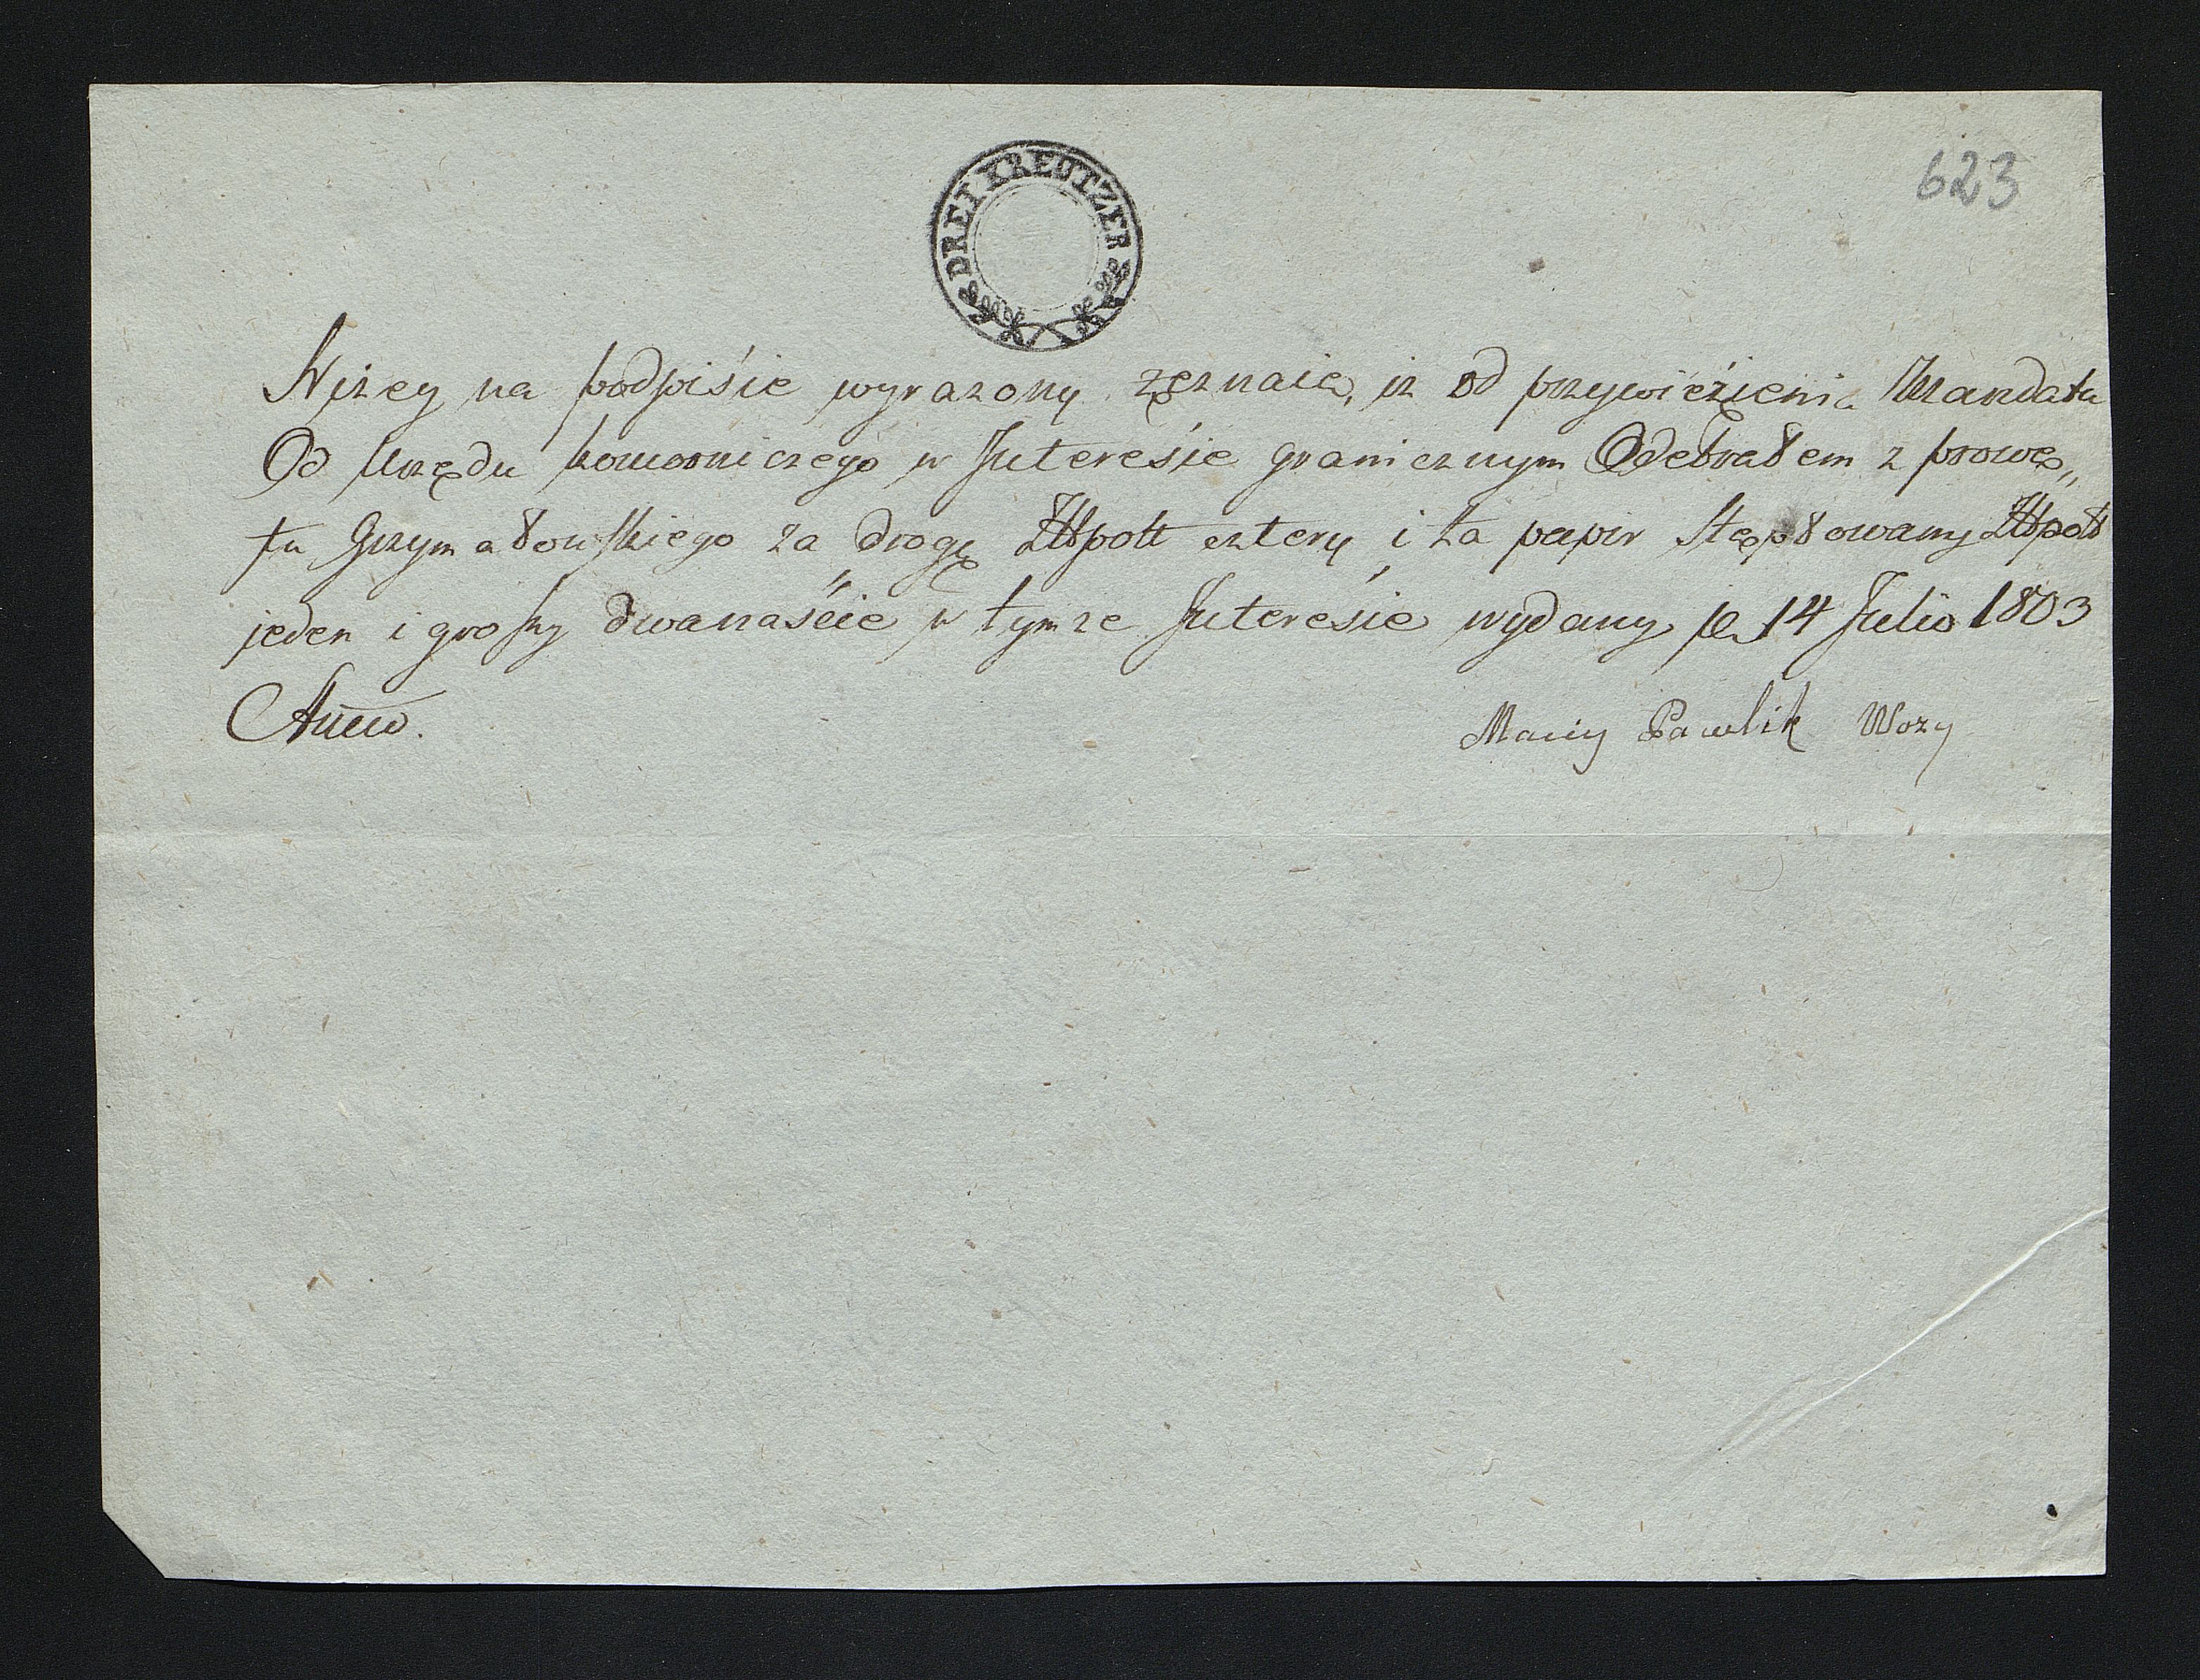 623
DREI KREUTZER
Nizey na podpiśie wyrazony zęznaię, iz od przywieźienia Mandatu
Od Urzędu komorniczego w Interesśie granicznym Odebrałem z prowę„
tu Grzymałowskiego za drogę Złłpoll cztery i za papir Stęplowany Złłpoll
jeden i groszy dwanaśćie w tymze Interesśie wydany, 14 Julio 1803
Anno.
Maciy Pawlik Wozy